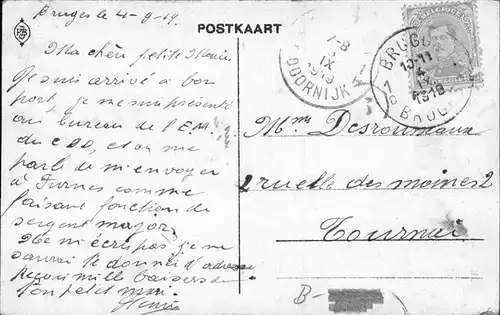 Bruges le 4-9-19.
POSTKAART
Ma chère petite
Je suis arrivé à bon
port, je me suis présenté
au bureau de l'E.M.
du et on me
parle de m'envoyer
à Furnes comme
faisant fonction de
sergent major.
Ne m'écris pas je ne
saurai te donner d'adresse
Reçois mille baisers de
ton petit mari.
7-8
IX
1919
DOORNIJK
BELGIQUE
BRUGGE
10-11
1919
BRUGES
Mme Desrousseaux
2 ruelle des moines 2
Tournai
B-